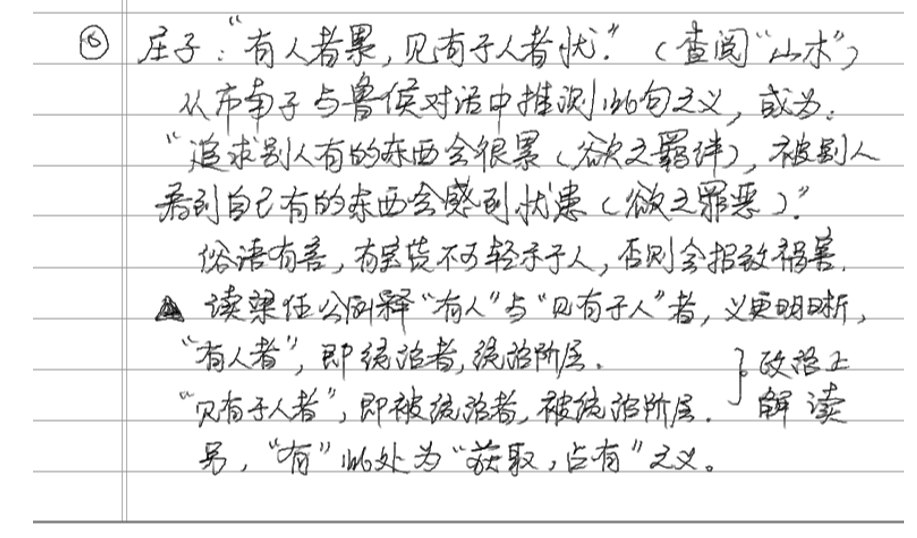 ⑥ 庄子:“有人者累,见有于人者忧。”(查阅“山木”)
从市南子与鲁侯对话中推测此句之义,或为:
“追求别人有的东西会很累(欲之羁绊),被别人
看到自己有的东西会感到忧患(欲之罪恶)。”
俗语有言,有宝货不可轻示于人,否则会招致祸害.
读梁任公阐释“有人”与“见有于人”者,义更明晰,
“有人者”,即统治者,统治阶层.
“见有于人者”,即被统治者,被统治阶层.
}政治上
解读
另,“有”此处为“获取,占有”之义。